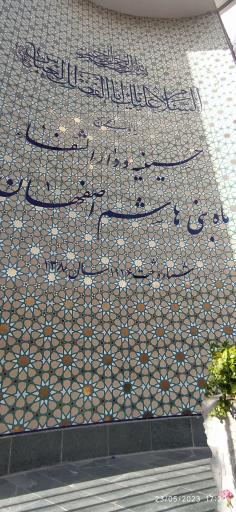 السلام علیک یا ابا الفضل العباس
حسینیه و دارالشفا
ماه بنی هاشم اصفهان
شماره ثبت ۱۱۱۰ سال ۱۳۸۰
23/05/2023 17:2